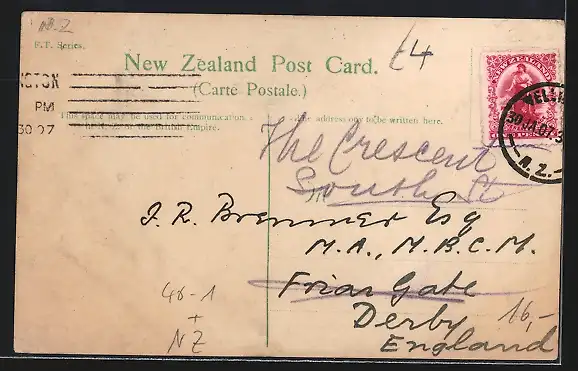 N.Z
F.T. Series.
New Zealand Post Card.
(Carte Postale.)
£4
NEW ZEALAND
WELLI
30 JA 07 3
N.Z.
NGTON
PM
30 07
This space may be used for communication
N. Z. or the British Empire.
the address only to be written here.
The Crescent
South St
J. R. Brenner Esq
M.A., M.B.C.M.
Friar Gate
Derby
England
16,-
48-1
+
NZ